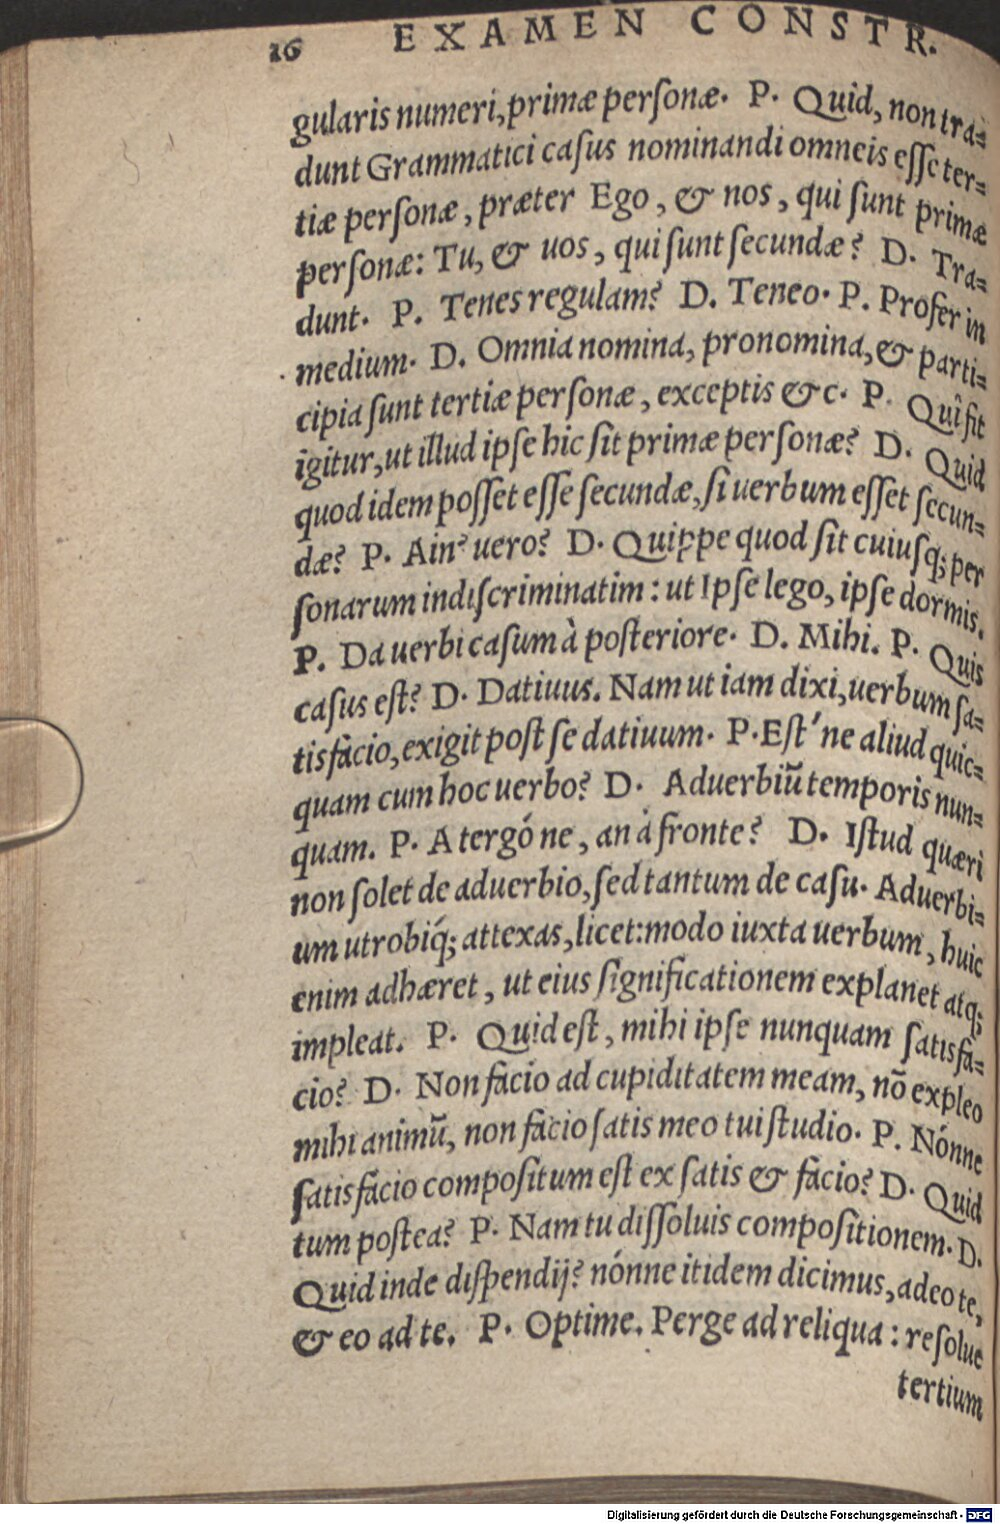 16 EXAMEN CONSTR.
gularis numeri, primæ personæ. P. Quid, non tra-
dunt Grammatici casus nominandi omneis esse ter-
tiæ personæ, præter Ego, & nos, qui sunt primæ
personæ: Tu, & uos, qui sunt secundæ? D. Tra-
dunt. P. Tenes regulam? D. Teneo. P. Profer in
medium. D. Omnia nomina, pronomina, & parti-
cipia sunt tertiæ personæ, exceptis &c. P. Quî fit
igitur, ut illud ipse hic sit primæ personæ? D. Quid
quod idem posset esse secundæ, si uerbum esset secun-
dæ? P. Ain' uero? D. Quippe quod sit cuiusq; per
sonarum indiscriminatim: ut Ipse lego, ipse dormis.
P. Da uerbi casum à posteriore. D. Mihi. P. Quis
casus est? D. Datiuus. Nam ut iam dixi, uerbum sa-
tisfacio, exigit post se datiuum. P. Est'ne aliud quic-
quam cum hoc uerbo? D. Aduerbiū temporis nun-
quam. P. A tergóne, an à fronte? D. Istud quæri
non solet de aduerbio, sed tantum de casu. Aduerbi-
um utrobiq́; attexas, licet: modo iuxta uerbum, huic
enim adhæret, ut eius significationem explanet atq;
impleat. P. Quid est, mihi ipse nunquam satisfa-
cio? D. Non facio ad cupiditatem meam, nō expleo
mihi animū, non facio satis meo tui studio. P. Nónne
satisfacio compositum est ex satis & facio? D. Quid
tum postea? P. Nam tu dissoluis compositionem. D.
Quid inde dispendij? nónne itidem dicimus, adeo te,
& eo ad te. P. Optime. Perge ad reliqua: resolue
tertium
Digitalisierung gefördert durch die Deutsche Forschungsgemeinschaft - DFG